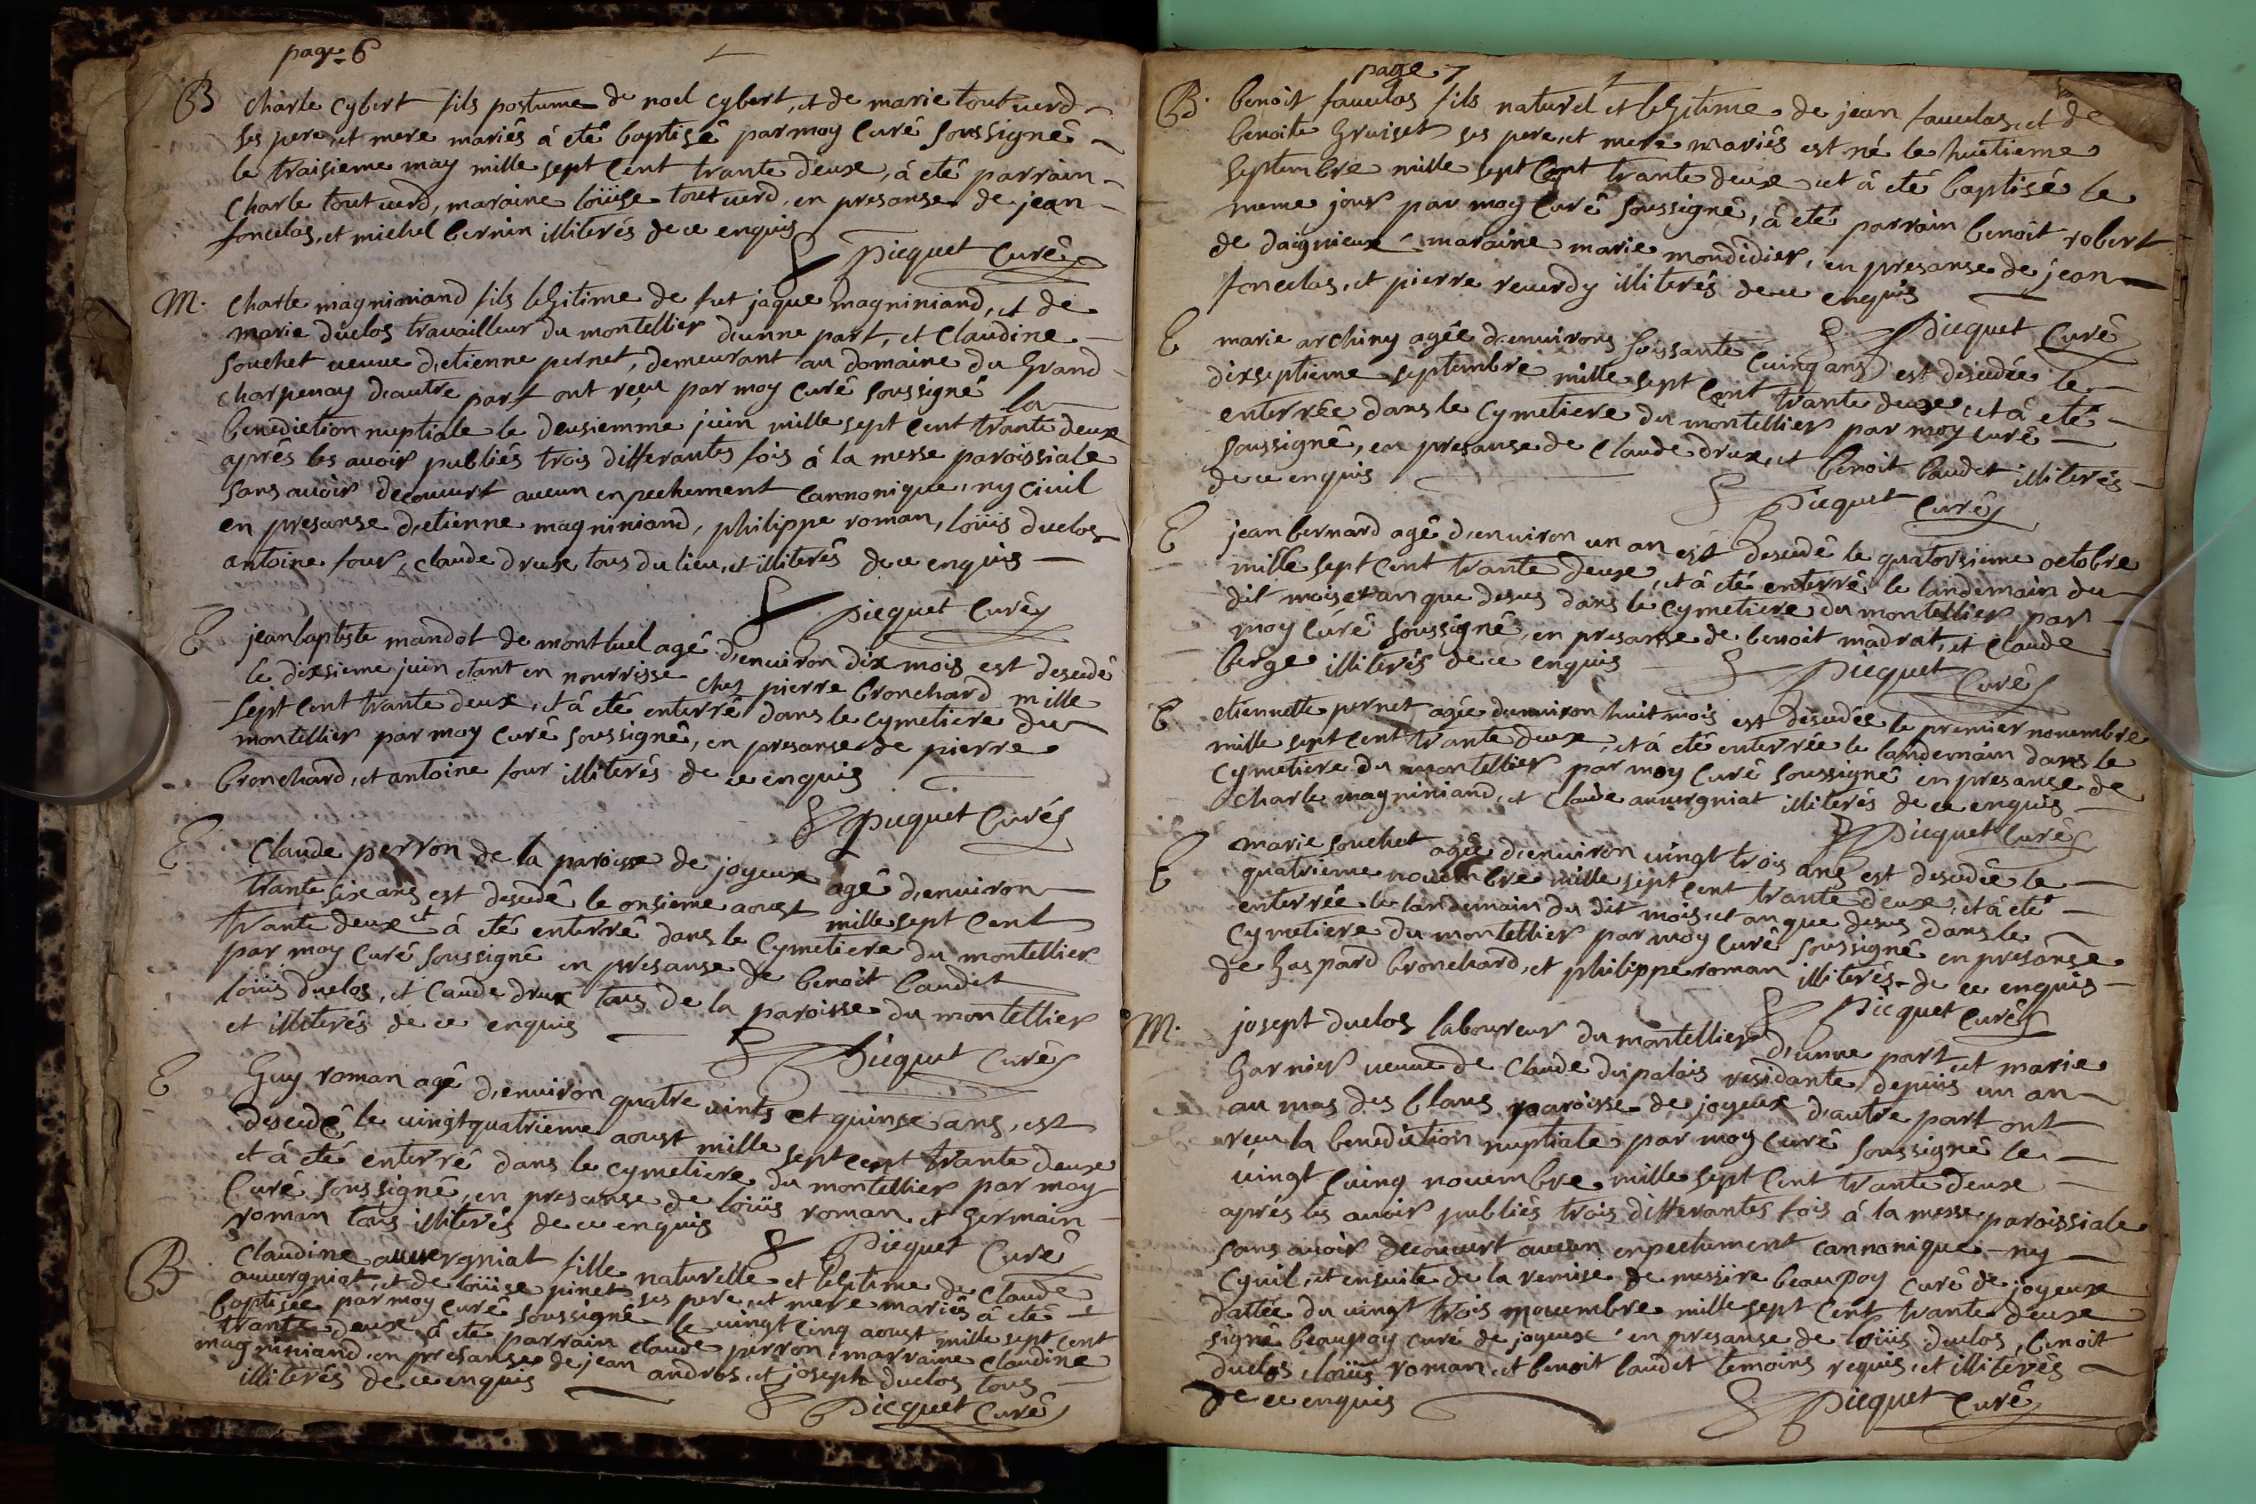 page 6
B charle cybert fils postume de noel cybert, et de marie toutuerd
ses pere, et mere mariés à eté baptisé par moy curé soussigné
le traisieme may mille sept cent trante deux, à eté parrain
charle toutuerd, maraine loüise toutuerd, en presanse de jean
fonculas, et michel bernin illiterés de ce enquis
Picquet curé
M. charle magniniand fils legitime de fut jaque magniniand, et de
marie duclos travailleur du montellier d'unne part, et claudine
souchet ueuue d'etienne pernet, demeurant au domaine du grand
charpenay d'autre part ont reçu par moy curé soussigné la
benediction nuptiale le deusiemme juin mille sept cent trante deux
aprés les auoir publiés trois differantes fois à la messe paroissiale
sans auoir decouuert aucun enpechement cannonique, ny ciuil
en presanse d'etienne magniniand, philippe roman, loüis duclos
antoine four, claude drux tous du lieu, et illiterés de ce enquis
Picquet curé
E jean baptiste mandot de montluel agé d'enuiron dix mois est desedé
le dixsieme juin etant en nourrisse chez pierre bronchard mille
sept cent trante deux, et à eté enterré dans le cymetiere du
montellier par moy curé soussigné, en presanse de pierre
bronchard, et antoine four illiterés de ce enquis
Picquet curé
E claude perron de la paroisse de joyeux agé d'enuiron
trante six ans est desedé le onsieme aoust mille sept cent
trante deux et à eté enterré dans le cymetiere du montellier
par moy curé soussigné en presanse de benoit baudet
loüis duclos, et claude drux tous de la paroisse du montellier
et illiterés de ce enquis
Picquet curé
E Guy roman agé d'enuiron quatre uints et quinse ans, est
desedé le uingtquatrieme aoust mille sept cent trante deux
et à eté enterré dans le cymetiere du montellier par moy
curé soussigné, en presanse de loüis roman, et germain
roman tous illiterés de ce enquis
Picquet curé
B claudine auuergniat fille naturelle et legitime de claude
auuergniat, et de loüise pinet ses pere, et mere mariés à eté
baptisée par moy curé soussigné le uingt cinq aoust mille sept cent
trante deux à eté parrain claude perron, marraine claudine
magniniand, en presanse de jean andros, et joseph duclos tous
illiterés de ce enquis
Picquet curé
page 7
B. benoit fauculas fils naturel et legitime de jean fauculas, et de
benoite gruiset ses pere, et mere mariés est né le huitieme
septembre mille sept cent trante deux et à eté baptisé le
meme jour par moy curé soussigné, à eté parrain benoit robert
de daignieux maraine marie mondidier, en presanse de jean
fonculas, et pierre reuerdy illiterés de ce enquis
Picquet curé
E marie archiny agée d'enuirons soissante cuinq ans est desedée le
dixseptieme septembre mille sept cent trante deux, et à eté
enterrée dans le cymetiere du montellier par moy curé
soussigné, en presanse de claude drux, et benoit baudet illiterés
de ce enquis
Picquet curé
E jean bernard agé d'enuiron un an est desedé le quatorsieme octobre
mille sept cent trante deux, et à eté enterré le landemain du
dit mois et an que desus dans le cymetiere du montellier par
moy curé soussigné, en presanse de benoit madrat, et claude
berge illiterés de ce enquis
Picquet curé
E etiennette pernet agée d'enuiron huit mois est desedée le premier nouembre
mille sept cent trante deux, et à eté enterrée le landemain dans le
cymetiere du montellier par moy curé soussigné en presanse de
charle magniniand, et claude auuergniat illiterés de ce enquis
Picquet curé
E marie souchet agée d'enuiron uingt trois ans est desedée le
quatrieme nouembre mille sept cent trante deux, et à eté
enterrée le landemain du dit mois, et an que desus dans le
cymetiere du montellier par moy curé soussigné en presanse
de gaspard bronchard, et philippe roman illiterés de ce enquis
Picquet curé
M. josept duclos laboureur du montellier d'unne part, et marie
garnier ueuue de claude dupalais residante depuis un an
au mas des blans paroisse de joyeux d'autre part ont
reçu la benediction nuptiale par moy curé soussigné le
uingt cuinq nouembre mille sept cent trante deux
aprés les auoir publiés trois differantes fois à la messe paroissiale
sans auoir decouuert aucun enpechement cannonique ny
cyuil, et ensuite de la remise de messire beaupoy curé de joyeux
dattée du uingt trois nouembre mille sept cent trante deux
signé beaupoy curé de joyeux en presanse de loüis duclos, benoit
duclos, loüis roman, et benoit baudet temoins requis, et illiterés
de ce enquis
Picquet curé